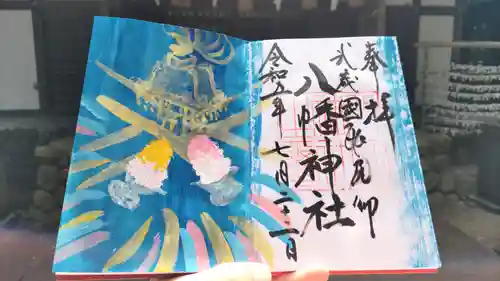 奉拝
武蔵國
八幡神社
令和五年 七月二十二日